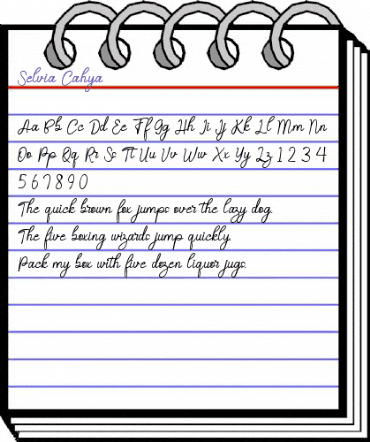 Selvia Cahya
Aa Bb Cc Dd Ee Ff Gg Hh Ii Jj Kk Ll Mm Nn
Oo Pp Qq Rr Ss Tt Uu Vv Ww Xx Yy Zz 1 2 3 4
5 6 7 8 9 0
The quick brown fox jumps over the lazy dog.
The five boxing wizards jump quickly.
Pack my box with five dozen liquor jugs.